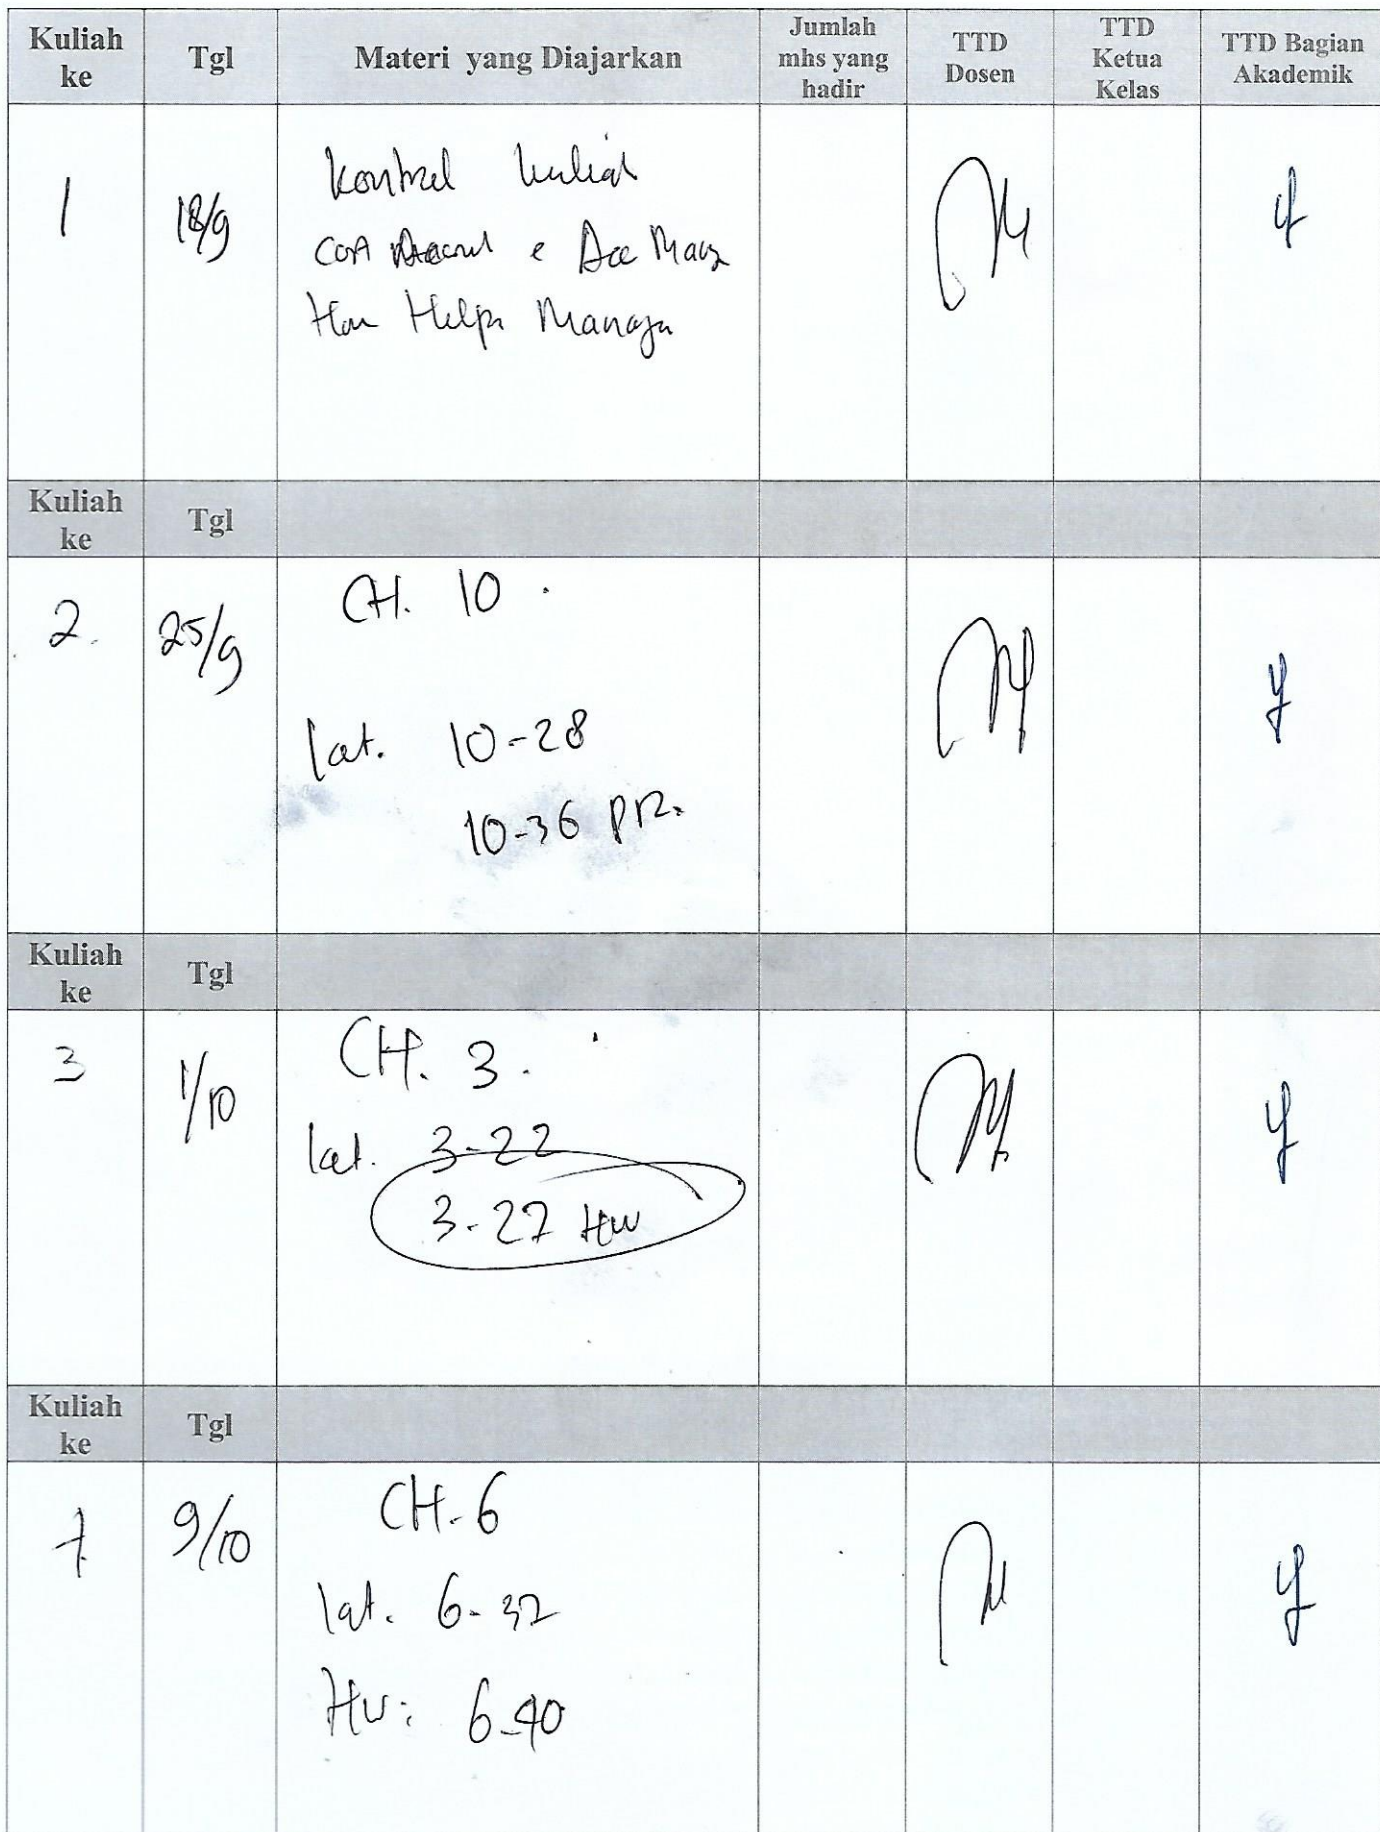 Kuliah ke Tgl Materi yang Diajarkan Jumlah mhs yang hadir TTD Dosen TTD Ketua Kelas TTD Bagian Akademik
1 18/9 Kontrak kuliah
How Helps
Kuliah ke Tgl
2. 25/9 CH. 10.
lat. 10-28
10-36 PR.
Kuliah ke Tgl
3 1/10 CH. 3.
lat. 3-22
3-27 HW
Kuliah ke Tgl
9/10 CH. 6
lat. 6-32
HW: 6-40